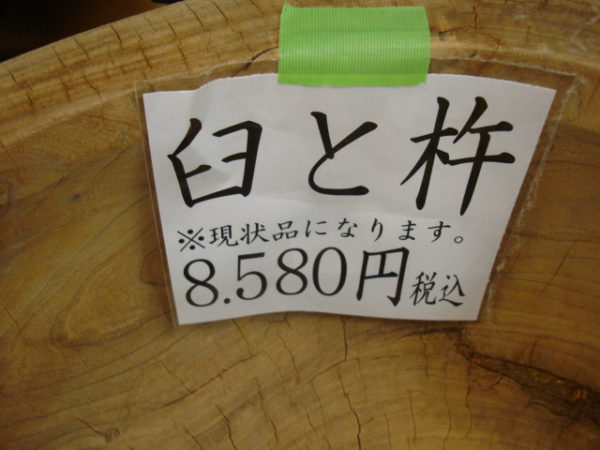 臼と杵
※現状品になります。
8.580円税込